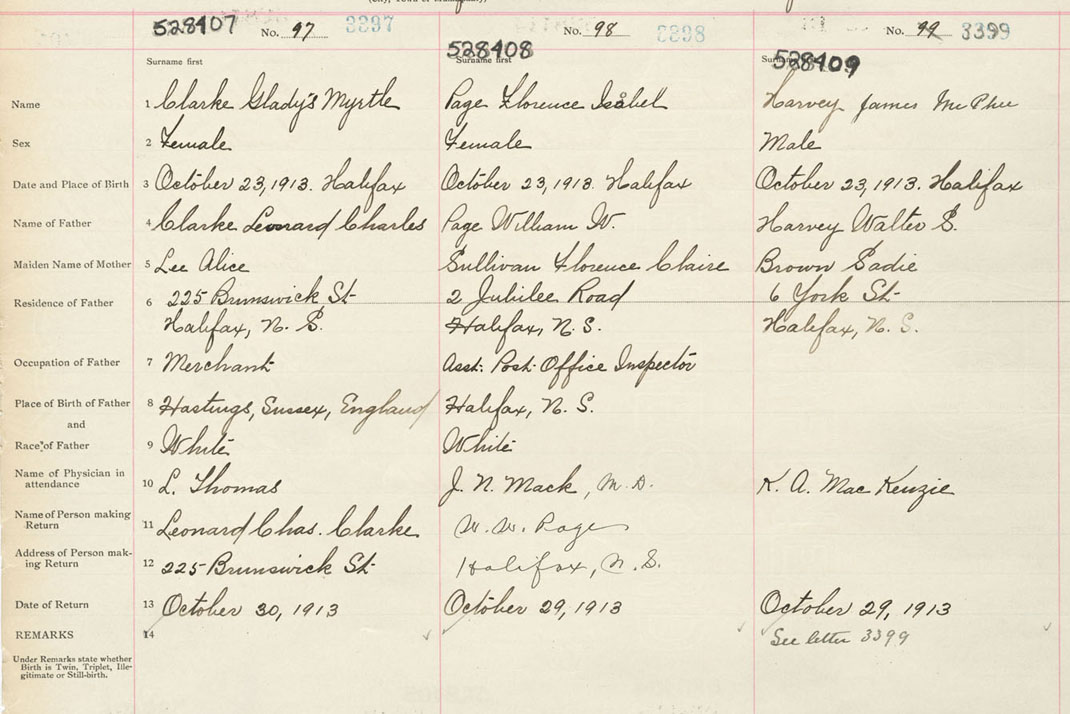 (City, Town or Municipality)
528407 No. 97 3397 528408 No. 98 3398 528409 No. 99 3399
Surname first Surname first
Name 1 Clarke Gladys Myrtle Page Florence Isabel Harvey James McPhee
Sex 2 Female Female Male
Date and Place of Birth 3 October 23, 1913. Halifax October 23, 1913. Halifax October 23, 1913. Halifax
Name of Father 4 Clarke Leonard Charles Page William W. Harvey Walter S.
Maiden Name of Mother 5 Lee Alice Sullivan Florence Claire Brown Sadie
Residence of Father 6 225 Brunswick St 2 Jubilee Road 6 York St
Halifax, N. S. Halifax, N. S. Halifax, N. S.
Occupation of Father 7 Merchant Asst. Post Office Inspector
Place of Birth of Father 8 Hastings, Sussex, England Halifax, N. S.
and
Race of Father 9 White White
Name of Physician in attendance 10 L. Thomas J. N. Mack, M. D. K. A. Mac Kenzie
Name of Person making Return 11 Leonard Chas. Clarke W. W. Page
Address of Person mak-
ing Return 12 225 Brunswick St Halifax, N. S.
Date of Return 13 October 30, 1913 October 29, 1913 October 29, 1913
REMARKS 14 See letter 3399
Under Remarks state whether
Birth is Twin, Triplet, Ille-
gitimate or Still-birth.